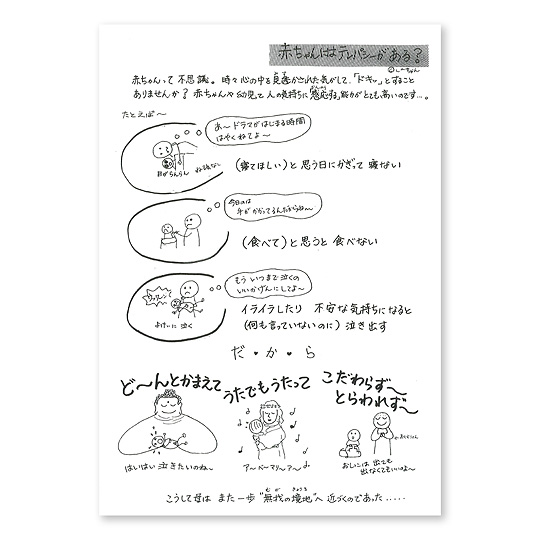 赤ちゃんにはテレパシーがある?
©しーちゃん
赤ちゃんって不思議。時々心の中を見透かされた気がして、「ドキッ」とすること
ありませんか?赤ちゃんや幼児って人の気持ちに感応する能力がとても高いのです…。
たとえば〜
あ〜ドラマがはじまる時間
はやくねてよ〜
目がらんらん
ね顔なし
(寝てほしい)と思う日にかぎって寝ない
今日のは
手がかかってるんだからね〜
(食べて)と思うと食べない
もういつまで泣くの
いいかげんにしてよ〜
よけいに泣く
イライラしたり 不安な気持ちになると
(何も言っていないのに)泣き出す
だ・か・ら
ど〜んとかまえて
うたでもうたって
こだわらず〜
とらわれず〜
はいはい泣きたいのね〜
ア〜ベーマリ〜ア〜
おしっこは出ても
出なくてもいいよ〜
こうして母は また一歩"無我の境地"へ近づくのであった.....